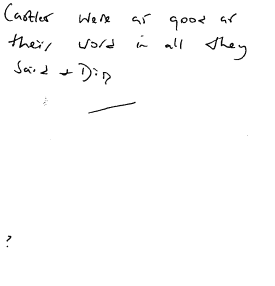 Castles were as good as
their word in all they
said + Did
?